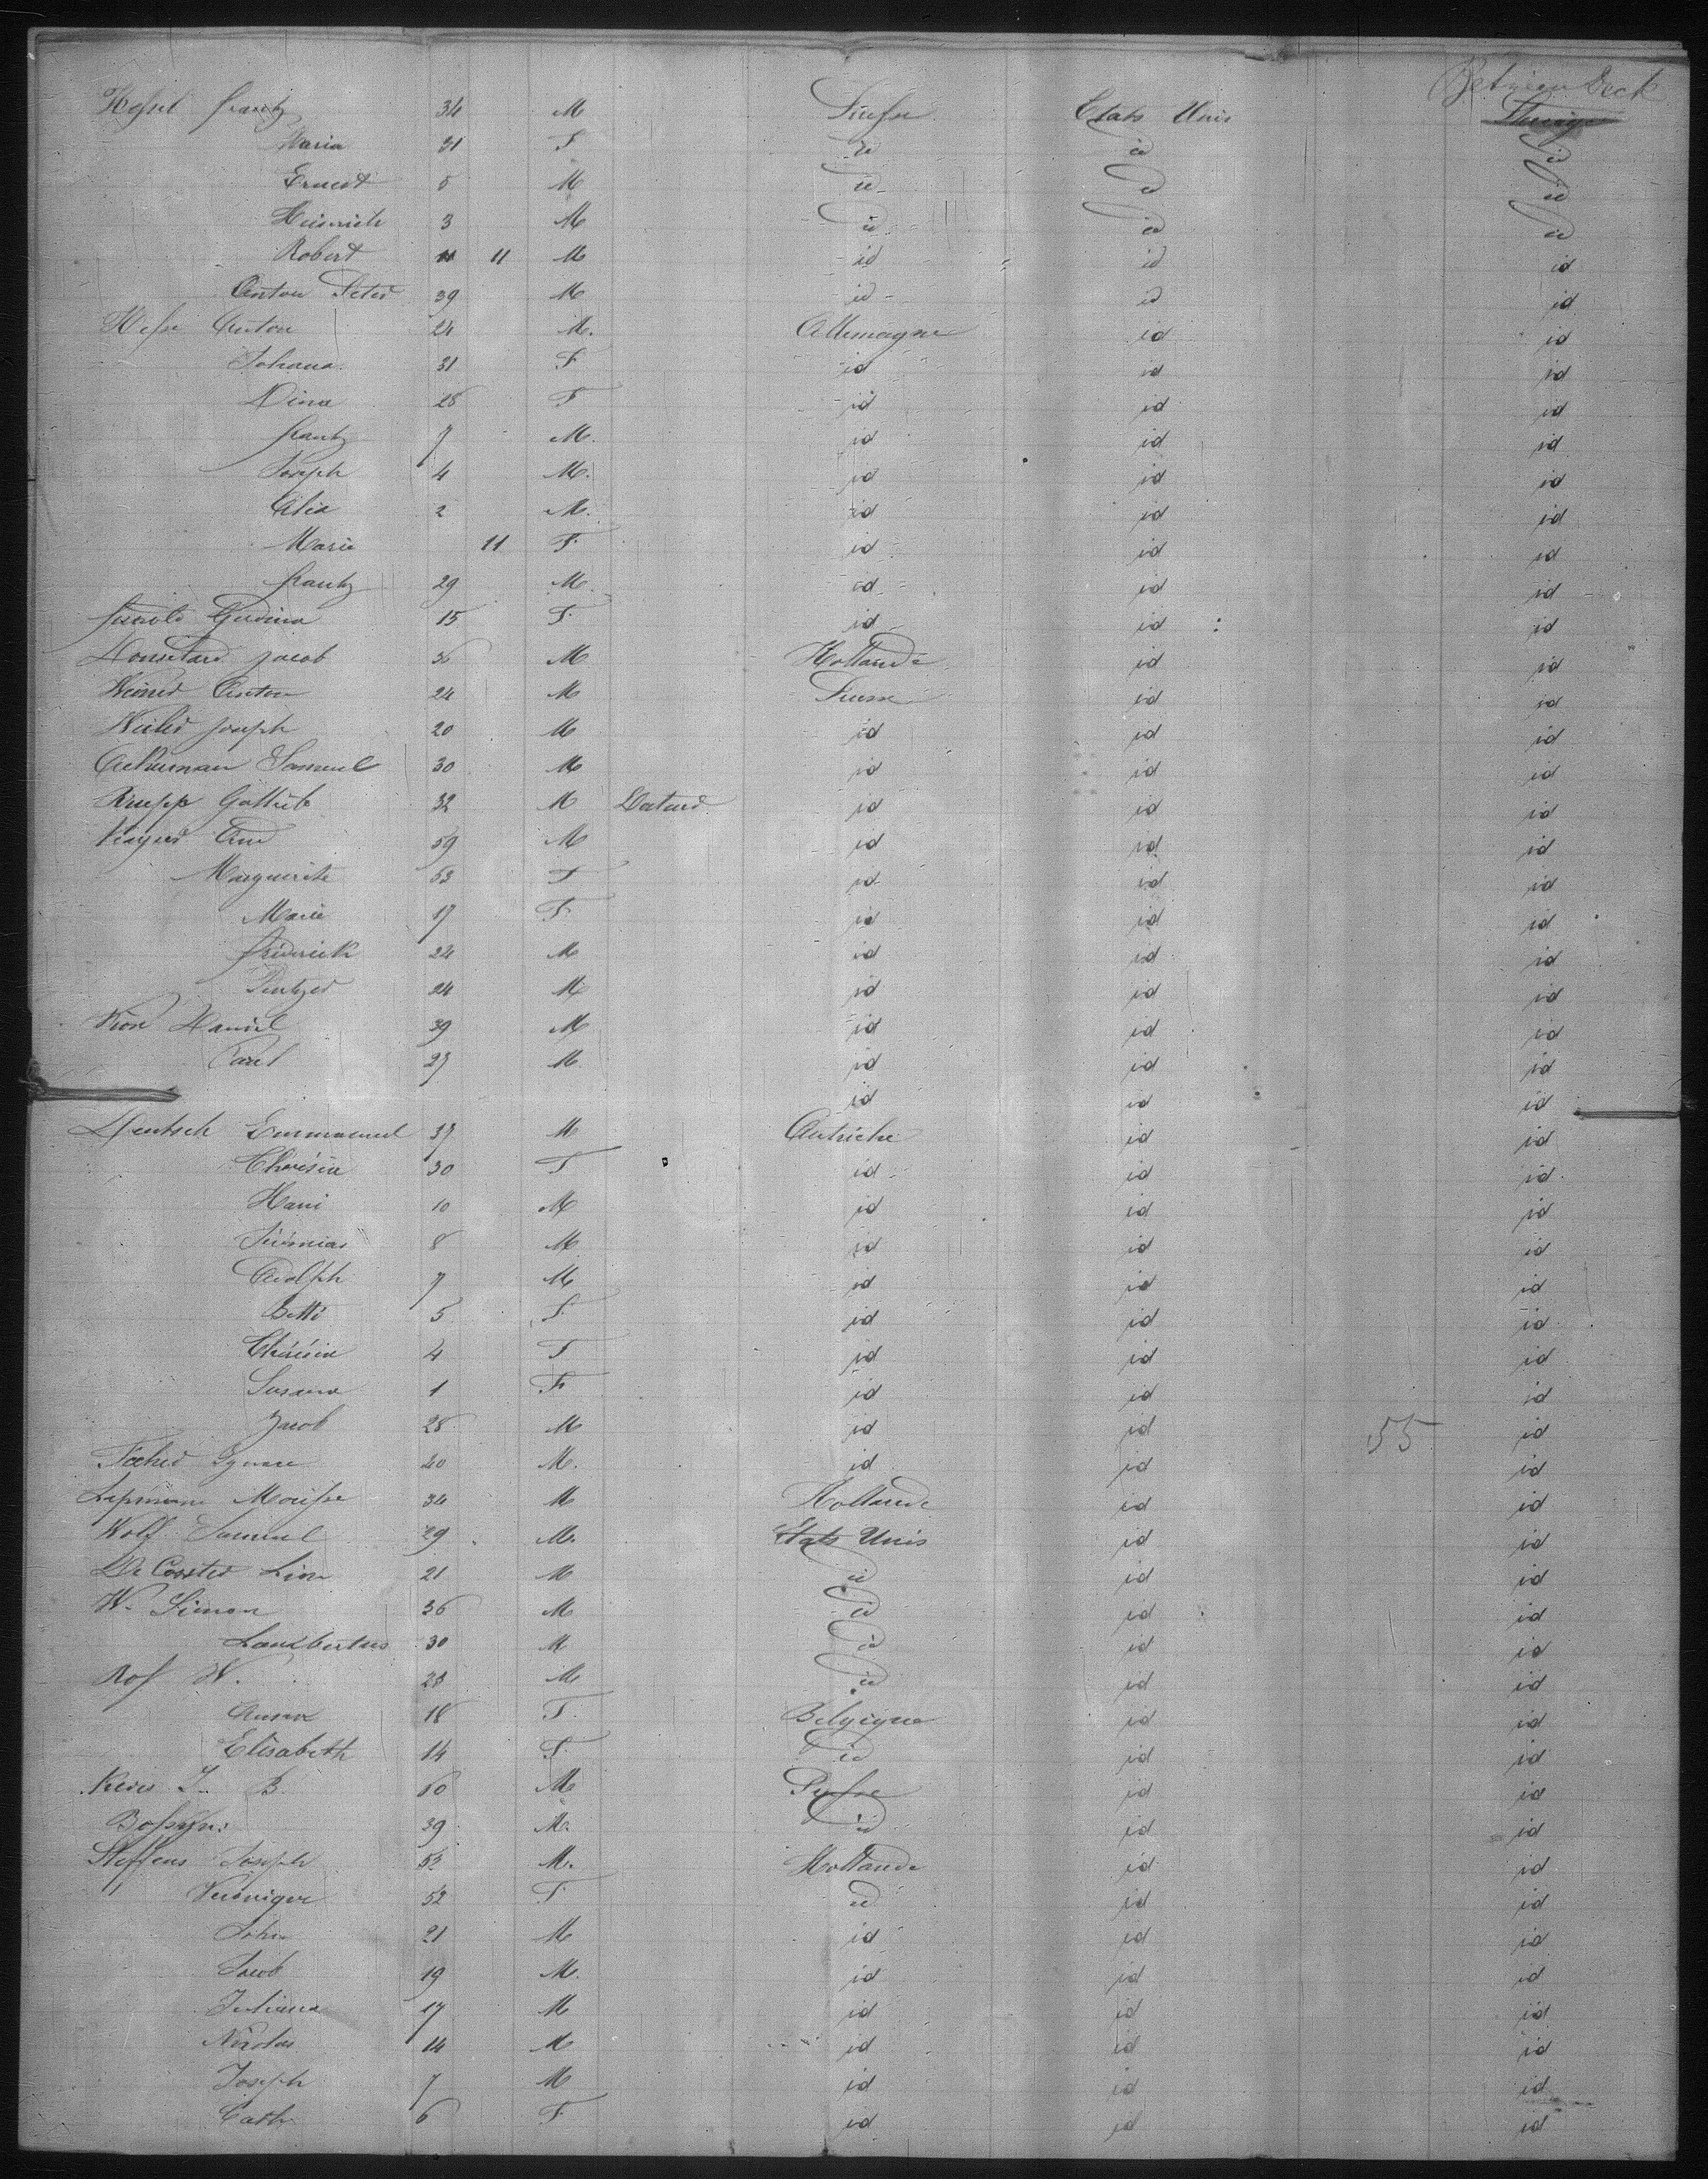 Between Deck
Hessel frantz 34 M Suisse Etats Unis Steerage
Maria 31 F id id id
Ernest 5 M id id id
Heinrich 3 M id id id
Robert 11 11 M id id id
Anton Peter 39 M id id id
Hesse Anton 24 M. Allemagne id id
Johana 31 F id id id
Dina 28 F id id id
frantz 7 M. id id id
Joseph 4 M. id id id
2 M. id id id
Marie 11 F id id id
frantz 29 M. id id id
15 F id id id
Jacob 36 M Hollande id id
Anton 24 M Suisse id id
Joseph 20 M id id id
Ackerman Samuel 30 M id id id
Krupp Gottlieb 32 M id id id
59 M id id id
Marguerite 53 F id id id
Marie 17 F id id id
friderick 24 M id id id
24 M id id id
Daniel 39 M id id id
Paul 27 M id id id
id id id
Deutsch Emmanuel 37 M Autriche id id
30 F id id id
Hani 10 M id id id
Jérémias 8 M id id id
Adolph 7 M id id id
Betti 5 F id id id
4 F id id id
Susana 1 F id id id
Jacob 28 M id id 55 id
40 M. id id id
34 M Hollande id id
Wolf Samuel 29 M. Etats Unis id id
De Coster Lion 21 M id id id
W. Simon 36 M id id id
Lambertus 30 M id id id
Ross W. 28 M id id id
Anna 18 F. Belgique id id
Elisabeth 14 F id id id
J. B. 50 M Pusse id id
39 M. id id id
Steffens Joseph 53 M. Hollande id id
Veronique 52 F id id id
John 21 M id id id
Jacob 19 M. id id id
Juliana 17 M id id id
Nicolas 14 M id id id
Joseph 7 M id id id
Cath 6 F id id id